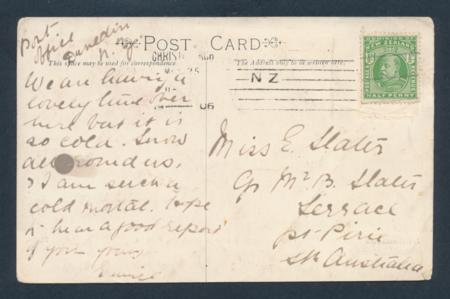 Post
Office
Dunedin
N.Z.
POST CARD
This space may be used for correspondence
The Address only to be written here
CHRIS
06
NZ
NEW ZEALAND
HALF PENNY
We are having a
lovely time over
here but it is
so cold. Snow
all round us,
& I am such a
cold mortal. Hope
to hear a good report
of you yours
Miss E. Slater
C/o Mr B. Slater
Terrace
Pt. Pirie
Sth Australia